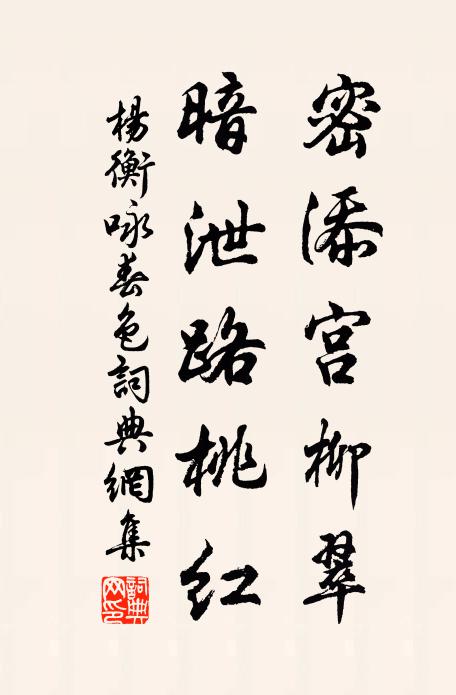 密添宫柳翠
暗泄路桃红
楊衡咏春色詞典網集
詞典网印